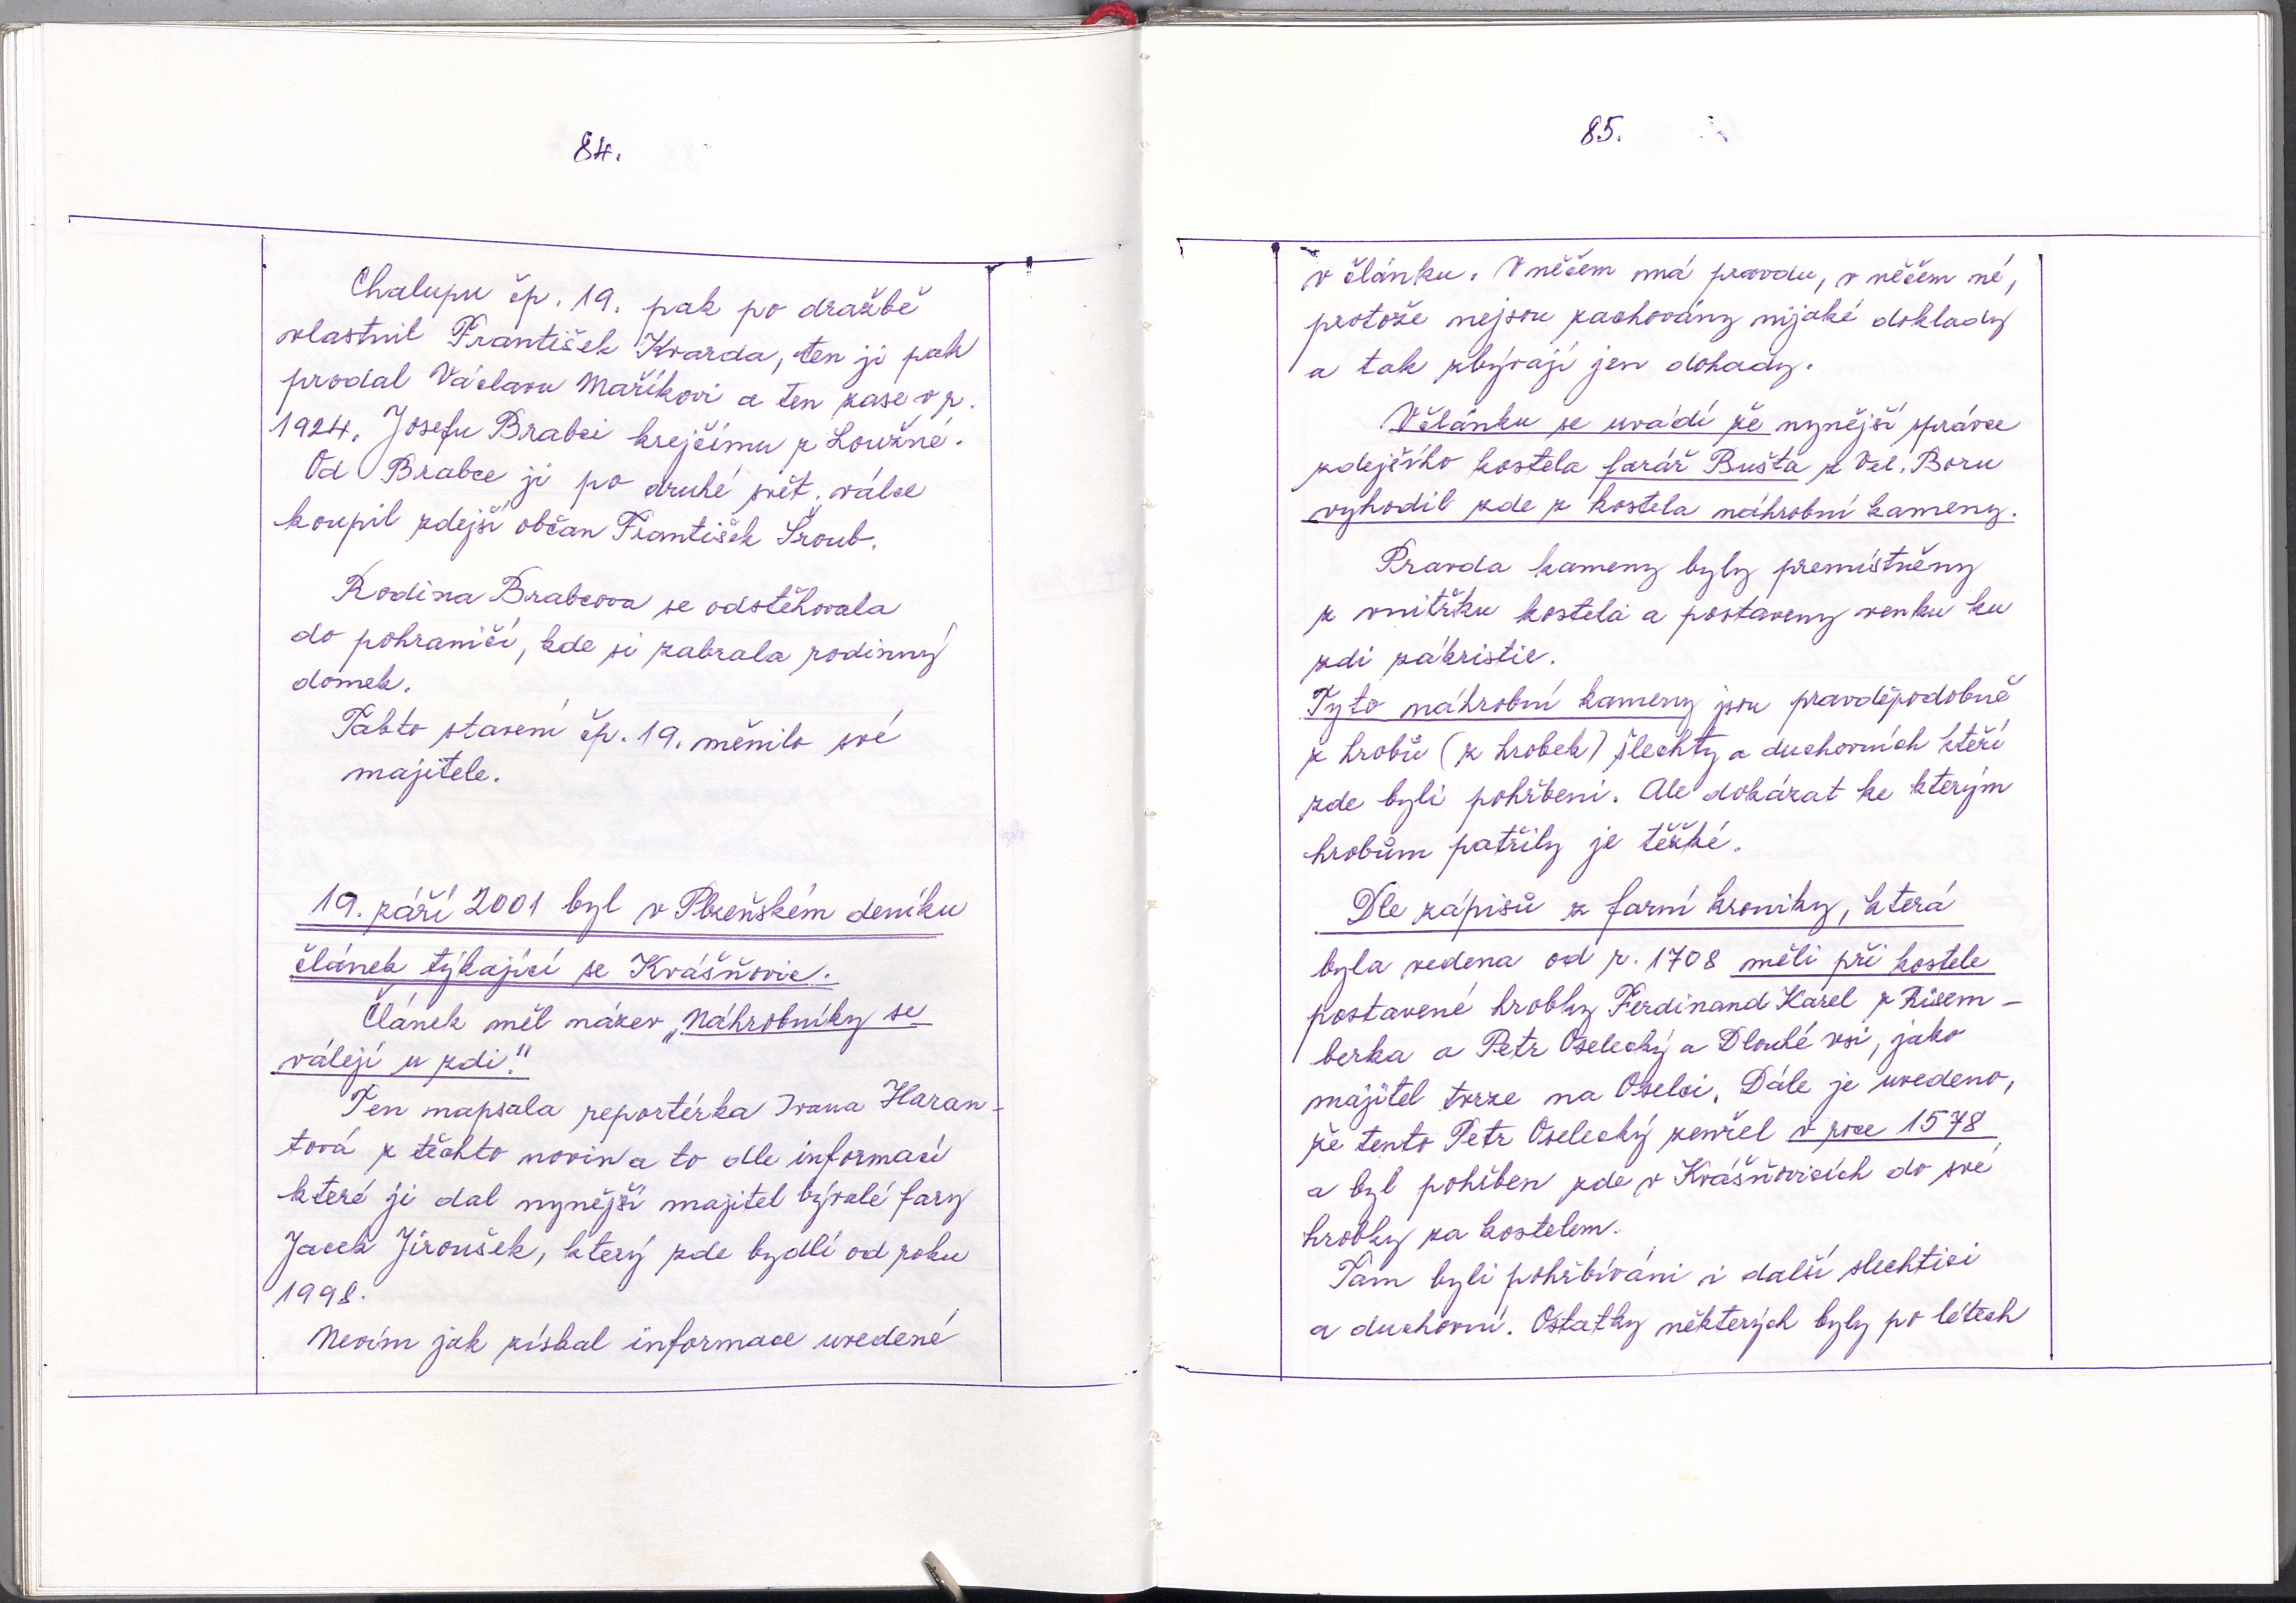 84.
Chalupu čp. 19. pak po dražbě
vlastnil František Kvarda, ten ji pak
prodal Václavu Maříkovi a ten zase v r.
1924. Josefu Brabci krejčímu z Loužné.
Od Brabce ji po druhé svět. válce
koupil zdejší občan František Šroub.
Rodina Brabcova se odstěhovala
do pohraničí, kde si zabrala rodinný
domek.
Takto stavení čp. 19. měnilo své
majitele.
19. září 2001 byl v Plzeňském deníku
článek týkající se Kvášňovic.
Článek měl název „Náhrobníky se
válejí u zdi."
Ten napsala reportérka Ivana Haran-
tová z těchto novin a to dle informací
které ji dal nynější majitel bývalé fary
Jacek Jiroušek, který zde bydlí od roku
1998.
Nevím jak získal informace uvedené
85.
v článku. V něčem má pravdu, v něčem né,
protože nejsou zachovány nijaké doklady
a tak zbývají jen dohady.
V článku se uvádí že nynější správce
zdejšího kostela farář Bušta z Vel. Boru
vyhodil zde z kostela náhrobní kameny.
Pravda kameny byly premístněny
z vnitřku kostela a postaveny venku ku
zdi zákristie.
Tyto náhrobní kameny jsou pravděpodobně
z hrobů (z hrobek) šlechty a duchovních kteří
zde byli pohřbeni. Ale dokázat ke kterým
hrobům patřily je těžké.
Dle zápisů z farní kroniky, která
byla vedena od r. 1708 měli při kostele
postavené hrobky Ferdinand Karel z Risem-
berka a Petr Oselecký a Dlouhé vsi, jako
májitel tvrze na Oselci. Dále je uvedeno,
že tento Petr Oselecký zemřel v roce 1578
a byl pohřben zde v Kvášňovicích do své
hrobky za kostelem.
Tam byli pohřbíváni i další slechtici
a duchovní. Ostatky některých byly po létech